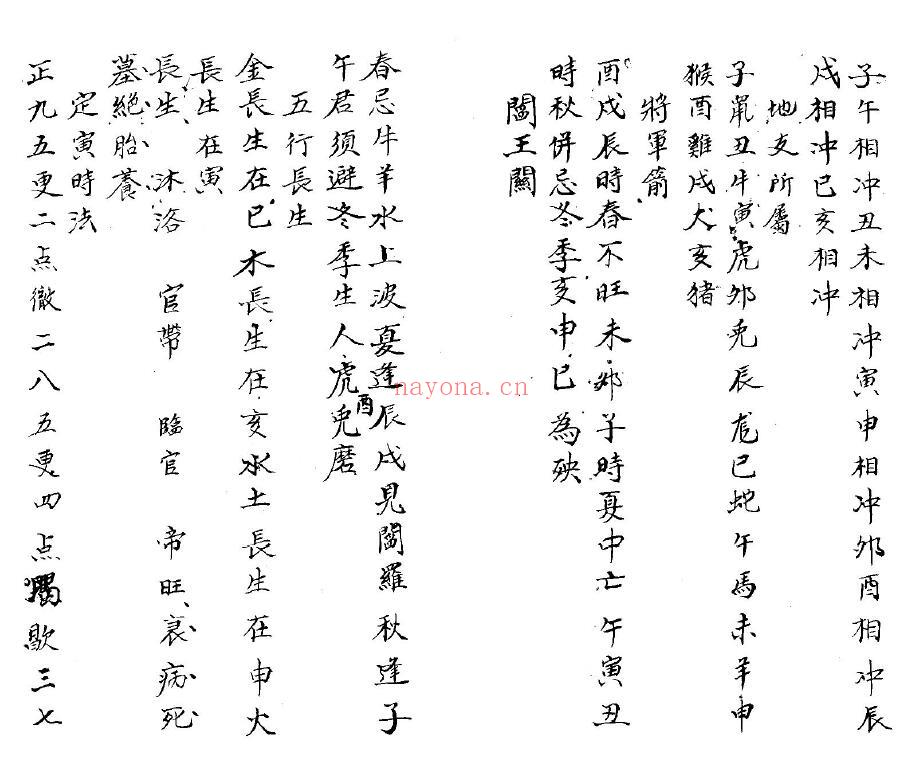 子午相冲丑未相冲寅申相冲卯酉相冲辰
戌相冲巳亥相冲
地支所屬
子鼠丑牛寅虎卯兔辰龙巳蛇午馬未羊申
猴酉雞戌犬亥猪
將軍箭
酉戌辰時春不旺未卯子時夏中亡午寅丑
時秋併忌冬季亥申巳為殃
閻王關
春忌牛羊水上波夏逢辰戌見閻羅秋逢子
午君須避冬季生人虎兔酉磨
五行長生
金長生在巳木長生在亥水土長生在申火
長生在寅
長生 沐洛 官帶 臨官 帝旺衰病死
墓絶胎養
定寅時法
正九五更二点徹二八五更四点歇三七
nayona.cn